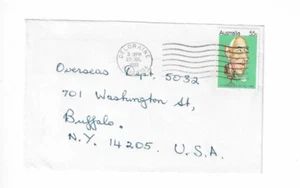 Australia 55c
DELORAINE
Overseas Dept. 5032
701 Washington St,
Buffalo.
N.Y. 14205. U.S.A.